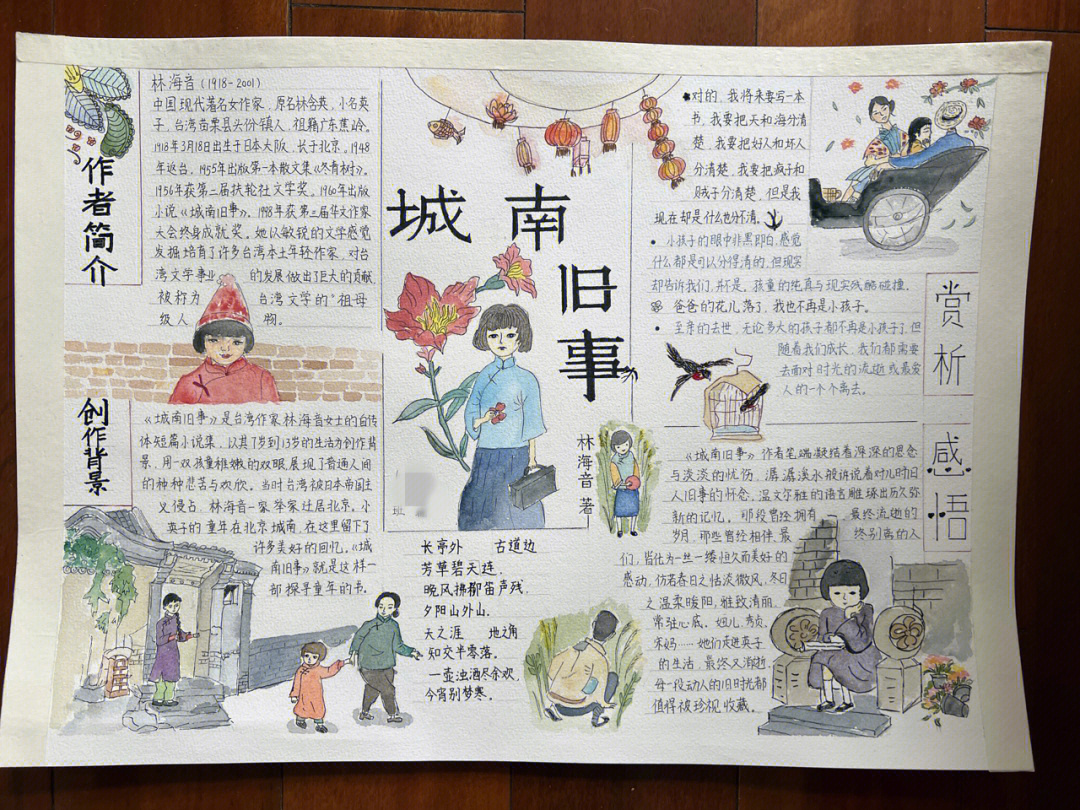 作者简介
林海音(1918-2001)
中国现代著名女作家,原名林含英,小名英
子,台湾苗栗县头份镇人,祖籍广东蕉岭。
1918年3月18日出生于日本大阪,长于北京。1948
年返台,1955年出版第一本散文集《冬青树》。
1956年获第二届扶轮社文学奖。1960年出版
小说《城南旧事》。1998年获第三届华文作家
大会终身成就奖。她以敏锐的文学感觉
发掘培育了许多台湾本土年轻作家,对台
湾文学事业 的发展做出了巨大的贡献
被称为 台湾文学的"祖母
级人 物。
创作背景
《城南旧事》是台湾作家林海音女士的自传
体短篇小说集,以其7岁到13岁的生活为创作背
景,用一双孩童稚嫩的双眼,展现了普通人间
的种种悲苦与欢欣。当时台湾被日本帝国主
义侵占,林海音一家举家迁居北京。小
英子的童年在北京城南,在这里留下了
许多美好的回忆。《城
南旧事》就是这样一
部探寻童年的书。
城南
旧事
林海音 著
班
长亭外 古道边
芳草碧天连,
晚风拂柳笛声残,
夕阳山外山。
天之涯 地之角
知交半零落。
一壶浊酒尽余欢,
今宵别梦寒。
对的,我将来要写一本
书,我要把天和海分清
楚,我要把好人和坏人
分清楚,我要把疯子和
贼子分清楚,但是我
现在却是什么也分不清。
• 小孩子的眼中非黑即白,感觉
什么都是可以分得清的,但现实
却告诉我们,并不是,孩童的纯真与现实残酷碰撞。
爸爸的花儿落了,我也不再是小孩子。
• 至亲的去世,无论多大的孩子都不再是小孩子了,但
随着我们成长,我们都需要
去面对时光的流逝或最爱
人的一个个离去。
赏析
《城南旧事》作者笔端凝结着深深的思念
与淡淡的忧伤,潺潺溪水般诉说着对儿时旧
人旧事的怀念,温文尔雅的语言雕琢出历久弥
新的记忆。那段曾经拥有 最终流逝的
岁月,那些曾经相伴,最 终别离的人
们,皆化为一丝一缕恒久而美好的
感动,仿若春日之恬淡微风,冬日
之温柔暖阳,雅致清丽,
常驻心底。妞儿,秀贞,
宋妈……她们走进英子
的生活,最终又消逝。
每一段动人的旧时光都
值得被珍视收藏。
感悟